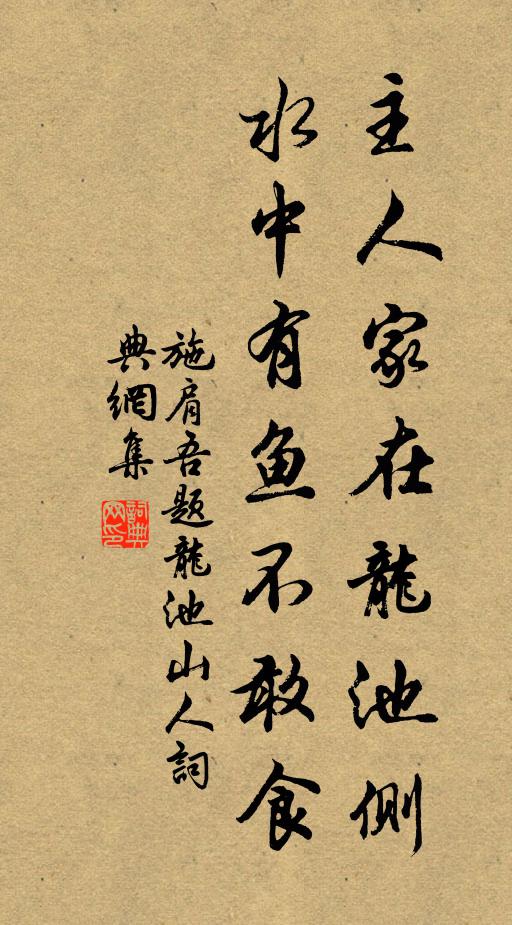 主人家在龍池側
水中有鱼不敢食
施肩吾题龍池山人詞
典網集
詞典
网印